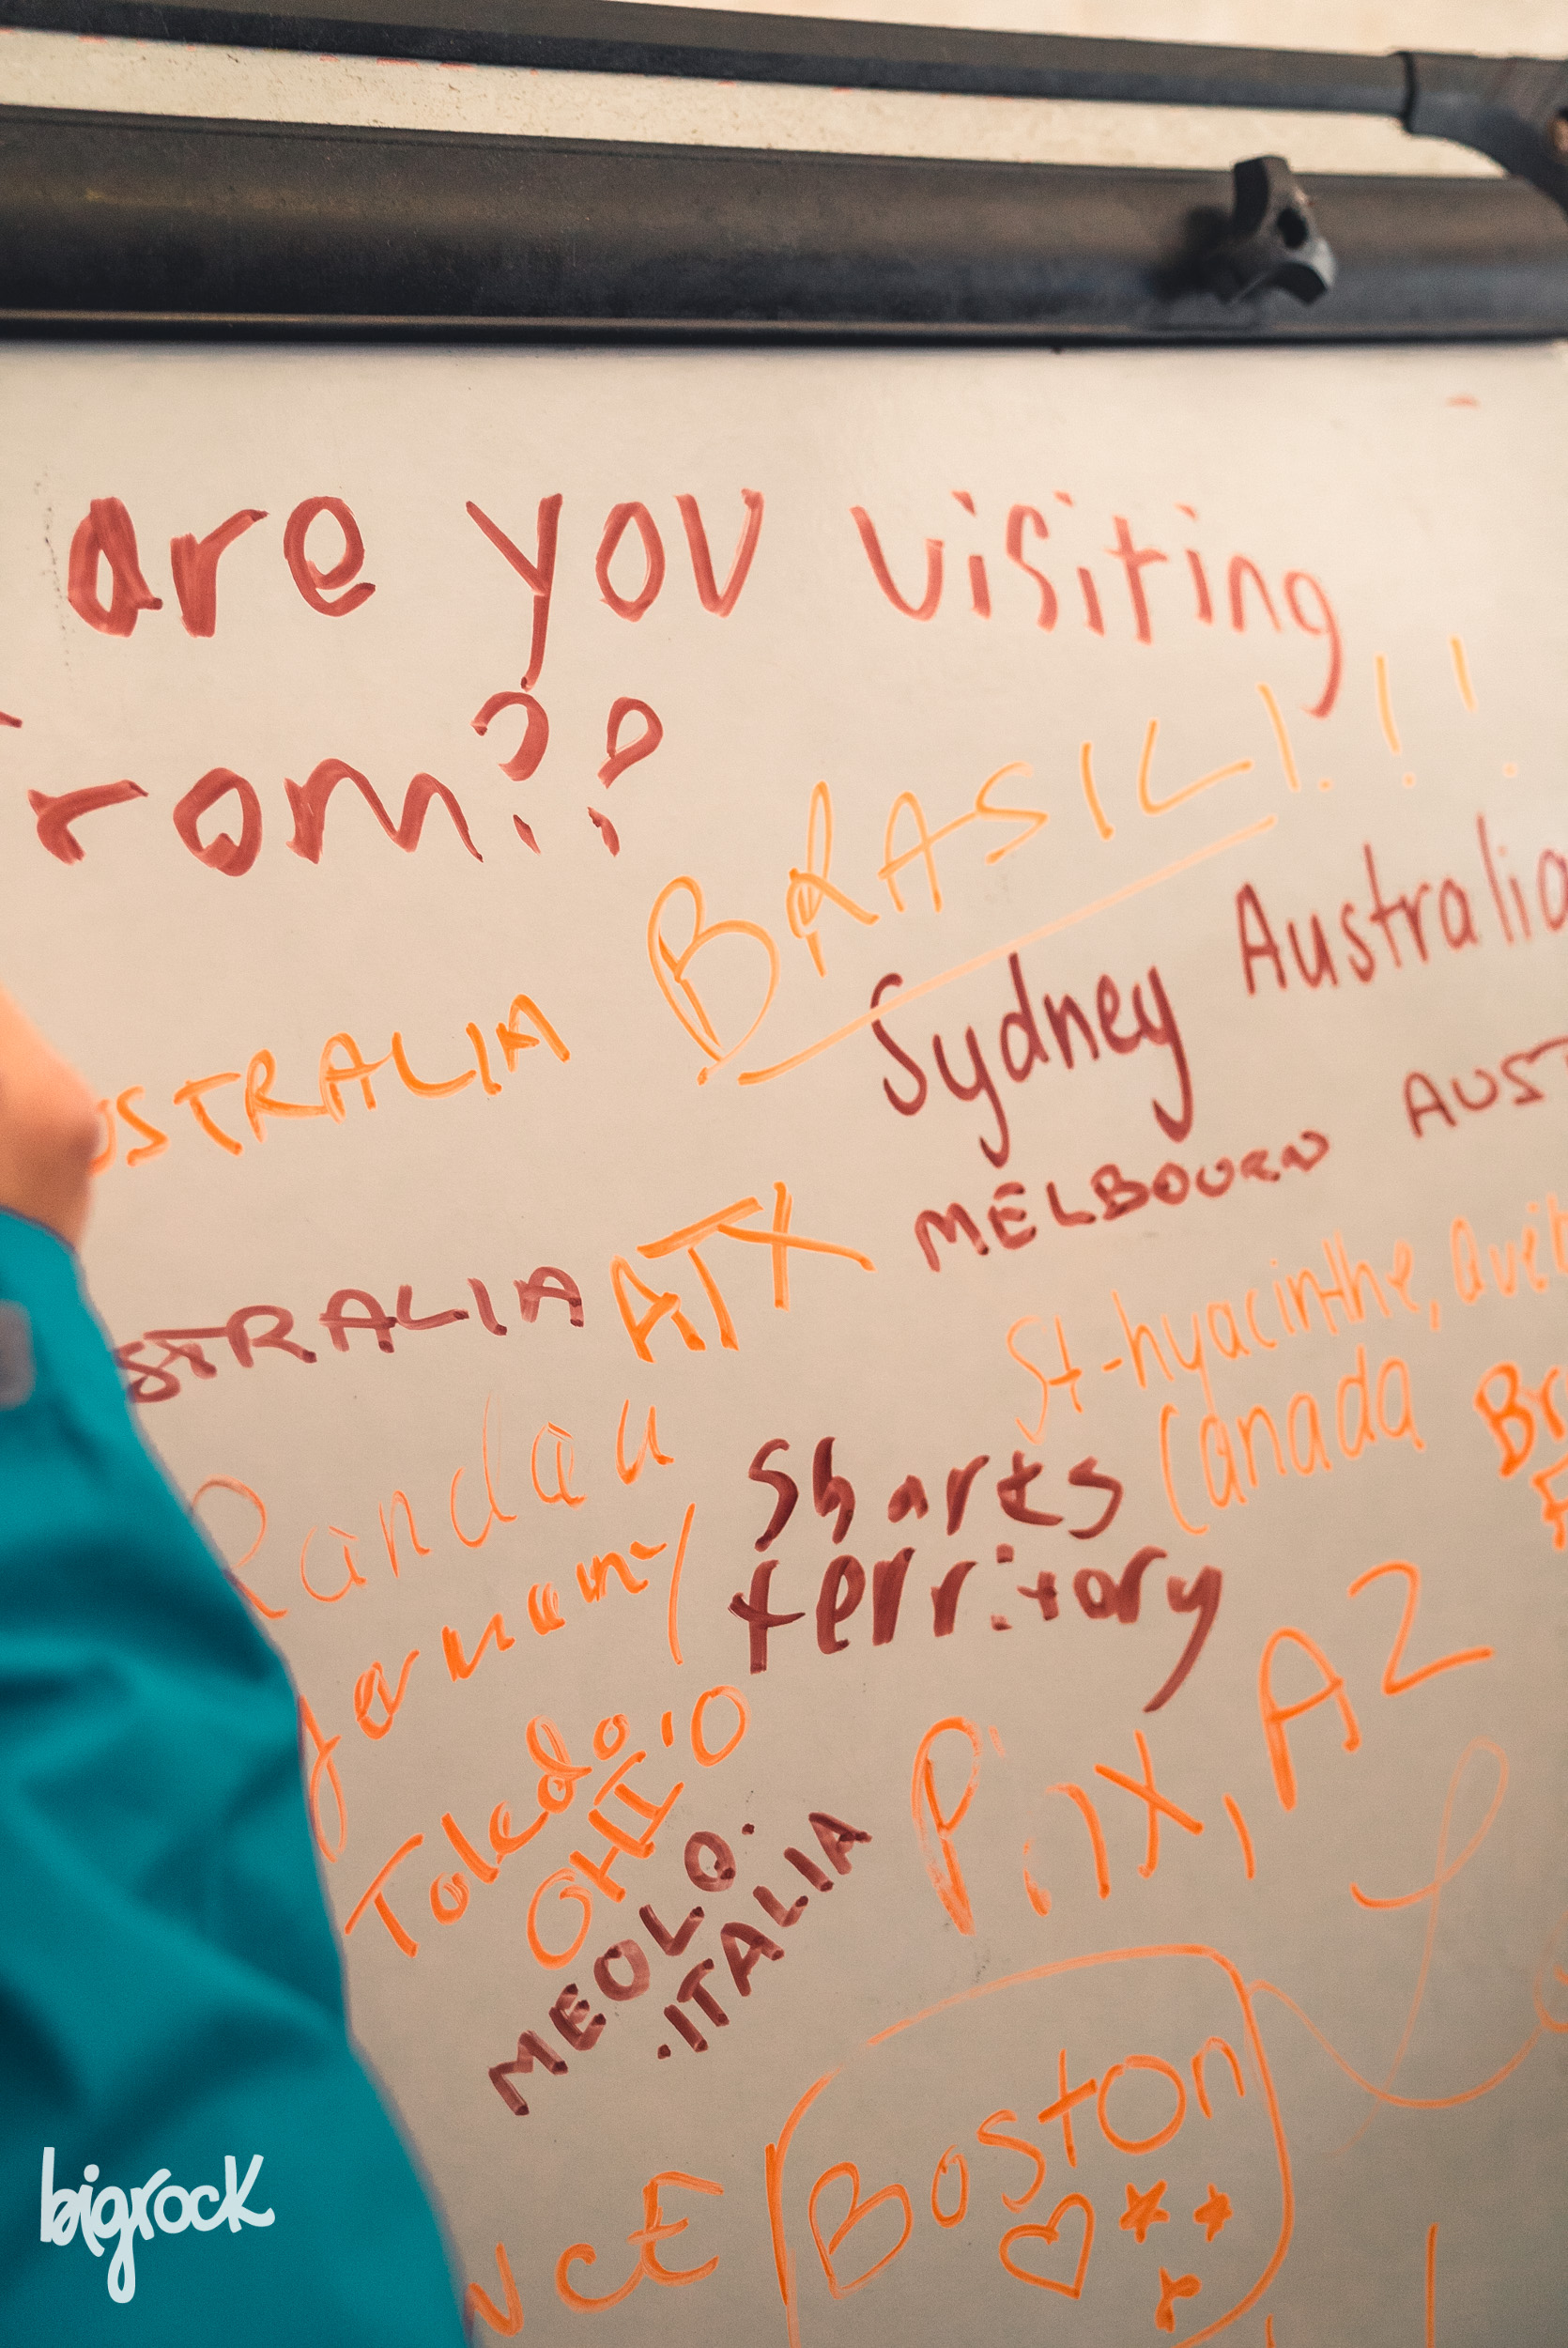 are you visiting
from??
BRASIL!!!
Sydney Australia
USTRALIA
MELBOURN AUST
STRALIA
ATX
St-hyacinthe,
Canada
Br
Randau
Germany
Sharks
territory
Toledo,
OHIO
PHX, AZ
MEOLO.
.ITALIA
Boston
NCE
bigrock